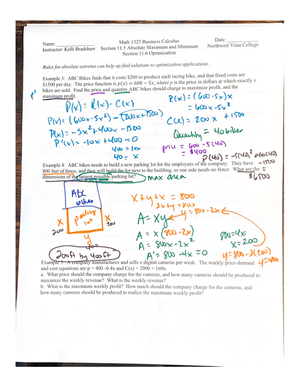 Name:
Math 1325 Business Calculus
Date:
Instructor: Kelli Bradshaw
Section 11.5 Absolute Maximum and Minimum
Northwest Vista College
Section 11.6 Optimization
Rules for absolute extrema can help up find solutions to optimization applications.
Example 3: ABC Bikes finds that it costs $200 to produce each racing bike, and that fixed costs are
$1500 per day. The price function is p(x) = 600 – 5x, where p is the price in dollars at which exactly x
bikes are sold. Find the price and quantity ABC bikes should charge to maximize profit, and the
maximum profit.
P(x) = R(x) - C(x)
R(x) = (600-5x)x
= 600x-5x²
P(x) = (600x-5x²) - (200x+1500)
C(x) = 200x + 1500
P(x) = -5x² + 400x - 1500
Quantity = 40 bikes
P'(x) = -10x + 400 = 0
price = 600-5(40)
= $400
400 = 10x
40 = x
$6500
Example 4: ABC bikes needs to build a new parking lot for the employees of the company. They have
800 feet of fence, and they will build the lot next to the building, so one side needs no fence. What are the
dimensions of the largest possible parking lot?
max area
ABC
bikes
parking
lot
x
x
y
200
200
x+y+x = 800
2x+y = 800
y = 800-2x
A = xy
A = x(800-2x)
A = 800x - 2x²
A' = 800-4x = 0
800=4x
x=200
y=800-2(200)
y=400
200ft by 400ft
Example 5: A company manufactures and sells x digital cameras per week. The weekly price-demand
and cost equations are p = 400 -0.4x and C(x) = 2000 + 160x.
a. What price should the company charge for the cameras, and how many cameras should be produced to
maximize the weekly revenue? What is the weekly revenue?
b. What is the maximum weekly profit? How much should the company charge for the cameras, and
how many cameras should be produced to realize the maximum weekly profit?